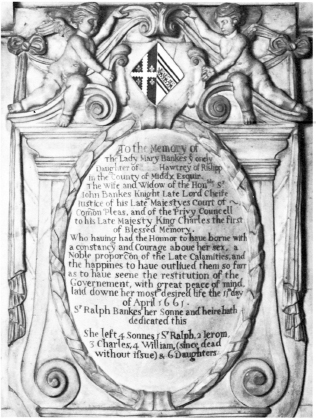 To the Memory of
The Lady Mary Bankes ye onely
Daughter of Hawtrey of Rislipp
in the County of Middx Esquire.
The Wife and Widow of the Honble Sr
John Bankes Knight Late Lord Cheife
Iustice of his Late Majestyes Court of
Comon Pleas, and of the Privy Councell
to his Late Majesty King Charles the First
of Blessed Memory.
Who having had the Honnor to haue borne with
a constancy and Courage aboue her sex, a
Noble proporc̃on of the Late Calamities, and
the happines to haue outliued them so farr
as to haue seene the restitution of the
Governement, with great peace of mind
laid downe her most desired life the 11th day
of April 1661.
Sr Ralph Bankes her Sonne and heire hath
dedicated this
She left 4 Sonnes, 1 Sr Ralph, 2 Jerom,
3 Charles, 4 William, (since dead
without issue) & 6 Daughters